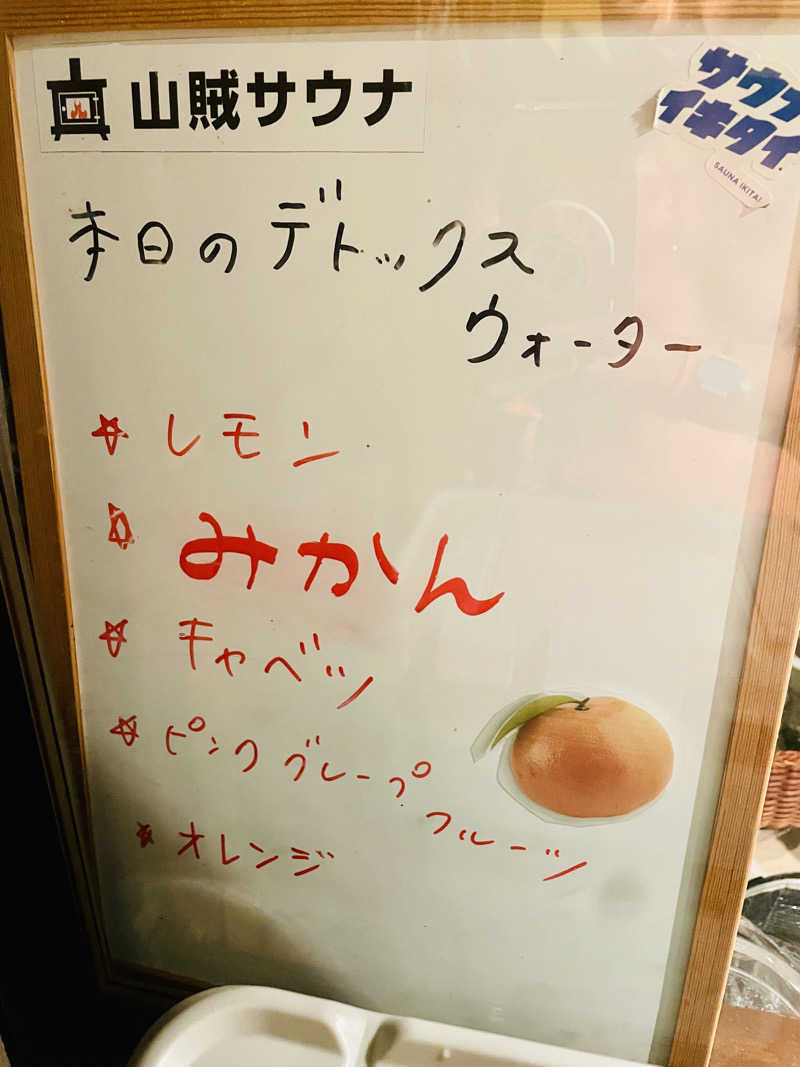 山賊サウナ
サウナ
イキタイ
SAUNA IKITAI
本日のデトックス
ウォーター
☆ レモン
☆ みかん
☆ キャベツ
☆ ピンクグレープ
フルーツ
☆ オレンジ